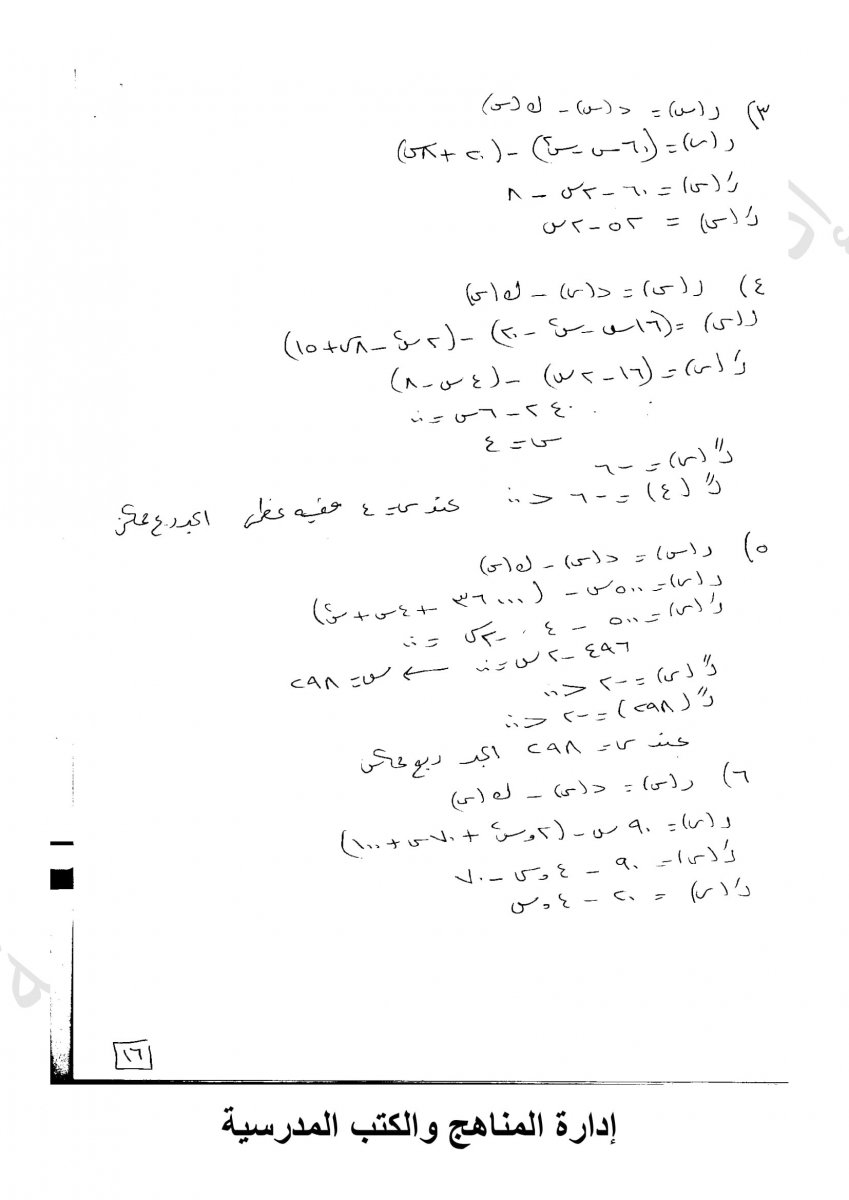 ٣) ر(س) = د(س) - ك(س)
ر(س) = (٦٠س - س٢) - (٢٠ + ٨س)
رَ(س) = ٦٠ - ٢س - ٨
رَ(س) = ٥٢ - ٢س
٤) ر(س) = د(س) - ك(س)
ر(س) = (١٦س - س٢ - ٢٠) - (٢س٢ - ٨س + ١٥)
رَ(س) = (١٦ - ٢س) - (٤س - ٨)
٢٤ - ٦س = ٠
س = ٤
رً(س) = -٦
رً(٤) = -٦ < ٠ عند س = ٤ قيمة عظمى أكبر ربح ممكن
٥) ر(س) = د(س) - ك(س)
ر(س) = ٥٠٠س - (٣٦٠٠٠ + ٤س + س٢)
رَ(س) = ٥٠٠ - ٤ - ٢س = ٠
٤٩٦ - ٢س = ٠ ← س = ٢٩٨
رً(س) = -٢ < ٠
رً(٢٩٨) = -٢ < ٠
عند س = ٢٩٨ أكبر ربح ممكن
٦) ر(س) = د(س) - ك(س)
ر(س) = ٩٠س - (٢,س٢ + ٧٠س + ١٠٠)
رَ(س) = ٩٠ - ٤,س - ٧٠
رَ(س) = ٢٠ - ٤,س
١٦
إدارة المناهج والكتب المدرسية